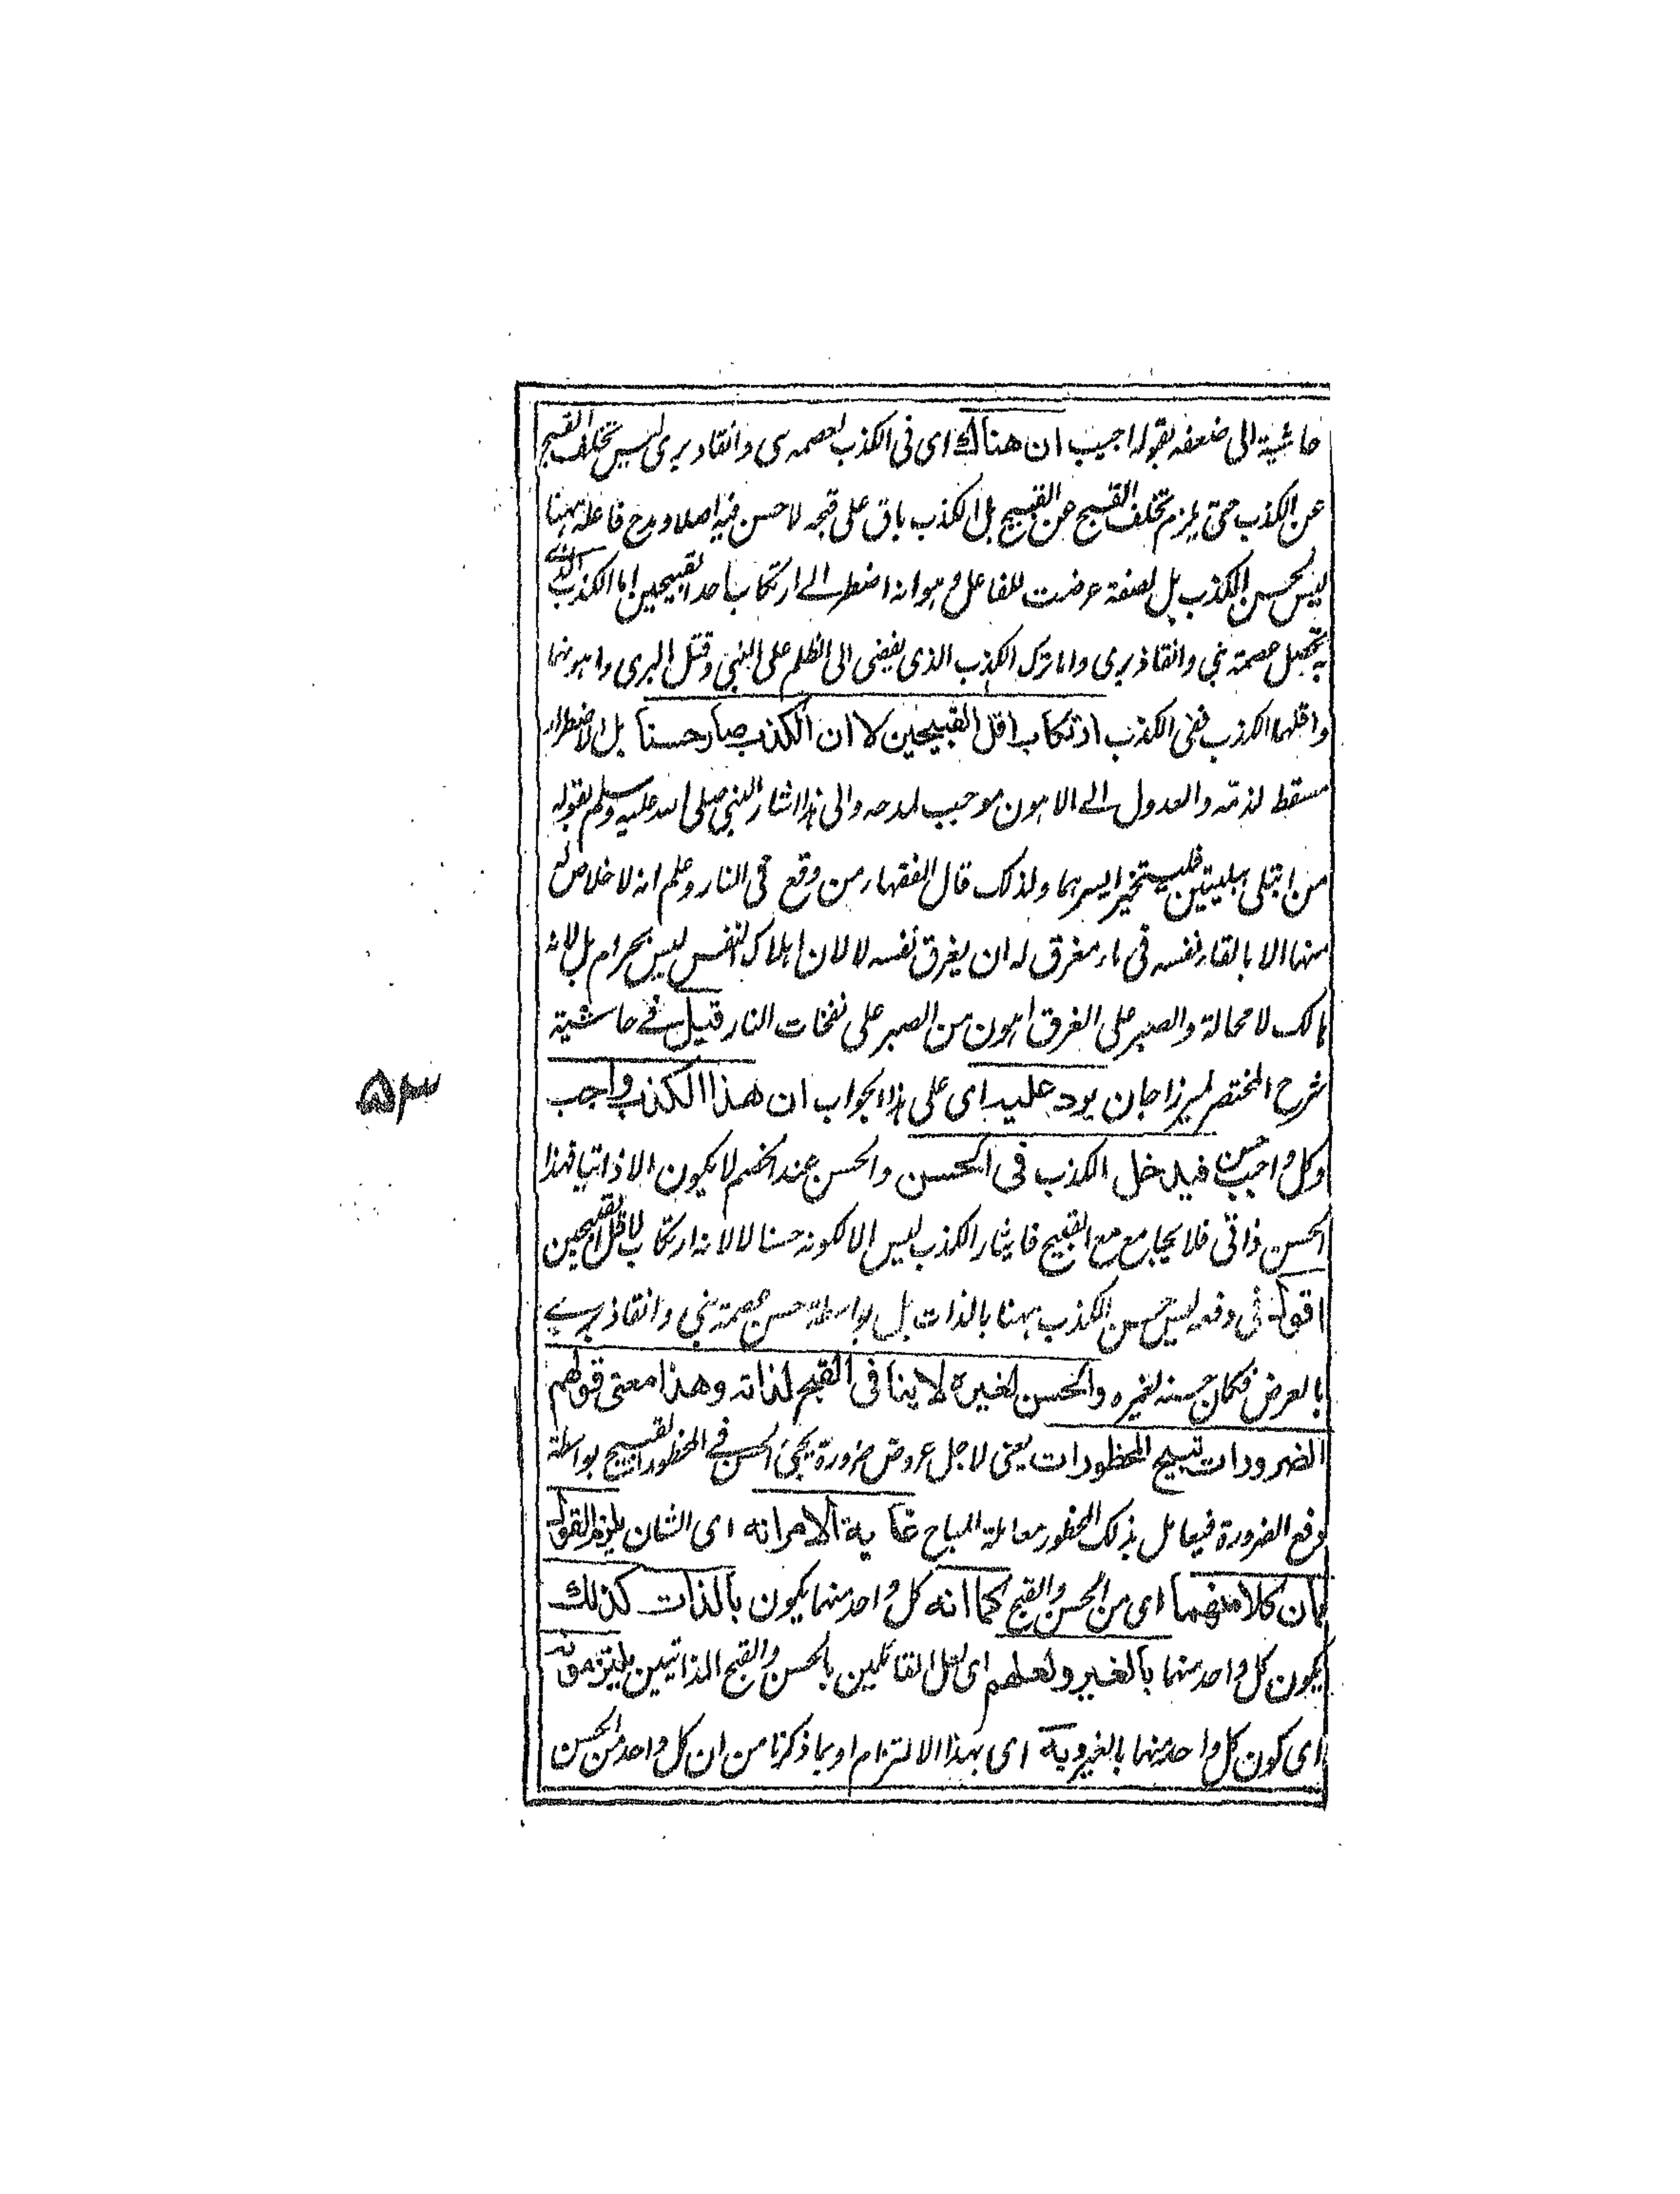 حاشية الى ضعفه بقوله اجيب ان هناك اى فى الكذب لعصمة نبى وانقاذ برى ليس تخلف القبح
عن الكذب حتى يلزم تخلف القبيح عن القبيح بل الكذب باق على قبحه لا حسن فيه اصلا ومدح فاعله ههنا
ليس لحسن الكذب بل لصفة عرضت للفاعل وهو انه اضطر الى ارتكاب احد القبيحين اما الكذب الذى
به تحصيل عصمة نبى وانقاذ برى واما ترك الكذب الذى يفضى الى الظلم على النبى وقتل البرى واهونهما
واقلهما الكذب ففى الكذب ارتكاب اقل القبيحين لا ان الكذب صار حسنا بل الاضطرار
مسقط لذمه والعدول الى الاهون موجب لمدحه والى هذا اشار النبى صلى الله عليه وسلم بقوله
من ابتلى ببليتين فليتخير ايسرهما ولذلك قال الفقهاء من وقع فى النار وعلم انه لا خلاص له
منها الا بالقاء نفسه فى ماء مغرق له ان يغرق نفسه لا لان اهلاك النفس ليس بحرام بل لانه
هالك لا محالة والصبر على الغرق اهون من الصبر على نفخات النار قيل فى حاشية
شرح المختصر لميرزا جان يرد عليه اى على هذا الجواب ان هذا الكذب واجب
وكل واجب حسن فيدخل الكذب فى الحسن والحسن عند الخصم لا يكون الا ذاتيا فهذا
الحسن ذاتى فلا يجامع مع القبيح فايثار الكذب ليس الا لكونه حسنا لا لانه ارتكاب لاقل القبيحين
اقول فى دفعه ليس حسن الكذب ههنا بالذات بل بواسطة حسن عصمة نبى وانقاذ برى
بالعرض فكان حسنه لغيره والحسن لغيره لا ينافى القبح لذاته وهذا معنى قولهم
الضرورات تبيح المحظورات يعنى لاجل عروض ضرورة يجئ الحسن فى المحظورات القبيح بواسطة
رفع الضرورة فيعامل بذلك المحظور معاملة المباح غاية الامر انه اى الشان يلزم القول
بان كلا منهما اى من الحسن والقبح كما انه كل واحد منهما يكون بالذات كذلك
يكون كل واحد منهما بالغير ولعلهم اى لعل القائلين بالحسن والقبح الذاتيين يلتزمونه
اى كون كل واحد منهما بالغير وبه اى بهذا الالتزام او بما ذكرنا من ان كل واحد من الحسن
۵۳